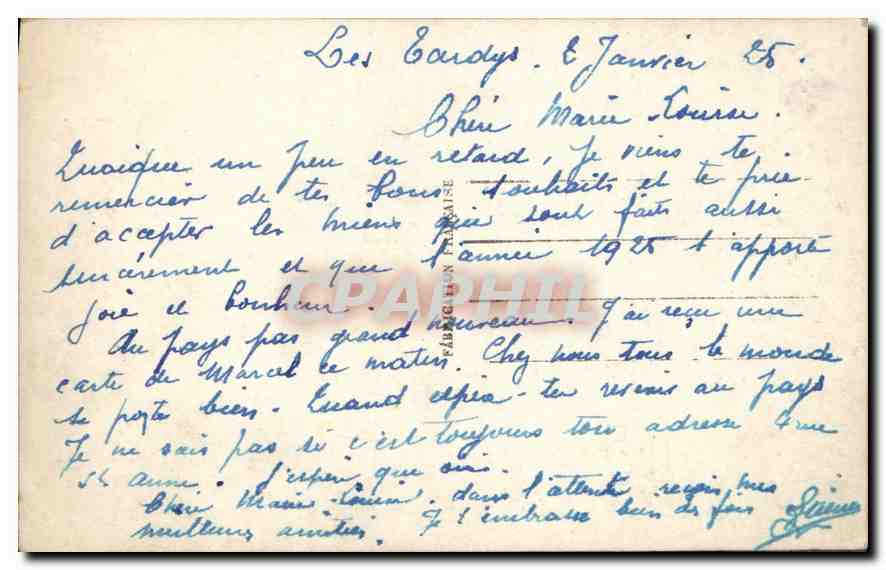 Les Tardys. 2 Janvier 25.
Chère Marie-Louise.
Quoique un peu en retard, je viens te
remercier de tes bons souhaits et te prie
d'accepter les miens qui sont faits aussi
sincèrement et que l'année 1925 t'apporte
joie et bonheur.
Au pays pas grand nouveau. J'ai reçu une
carte de Marcel ce matin. Chez nous tous le monde
se porte bien. Quand espère-tu revenir au pays
Je ne sais pas si c'est toujours ton adresse 4 rue
St anne. J'espère que oui.
Chère Marie-Louise, dans l'attente reçois mes
meilleures amitiés. Je t'embrasse bien des fois
FABRICATION FRANÇAISE
CPAPHIL